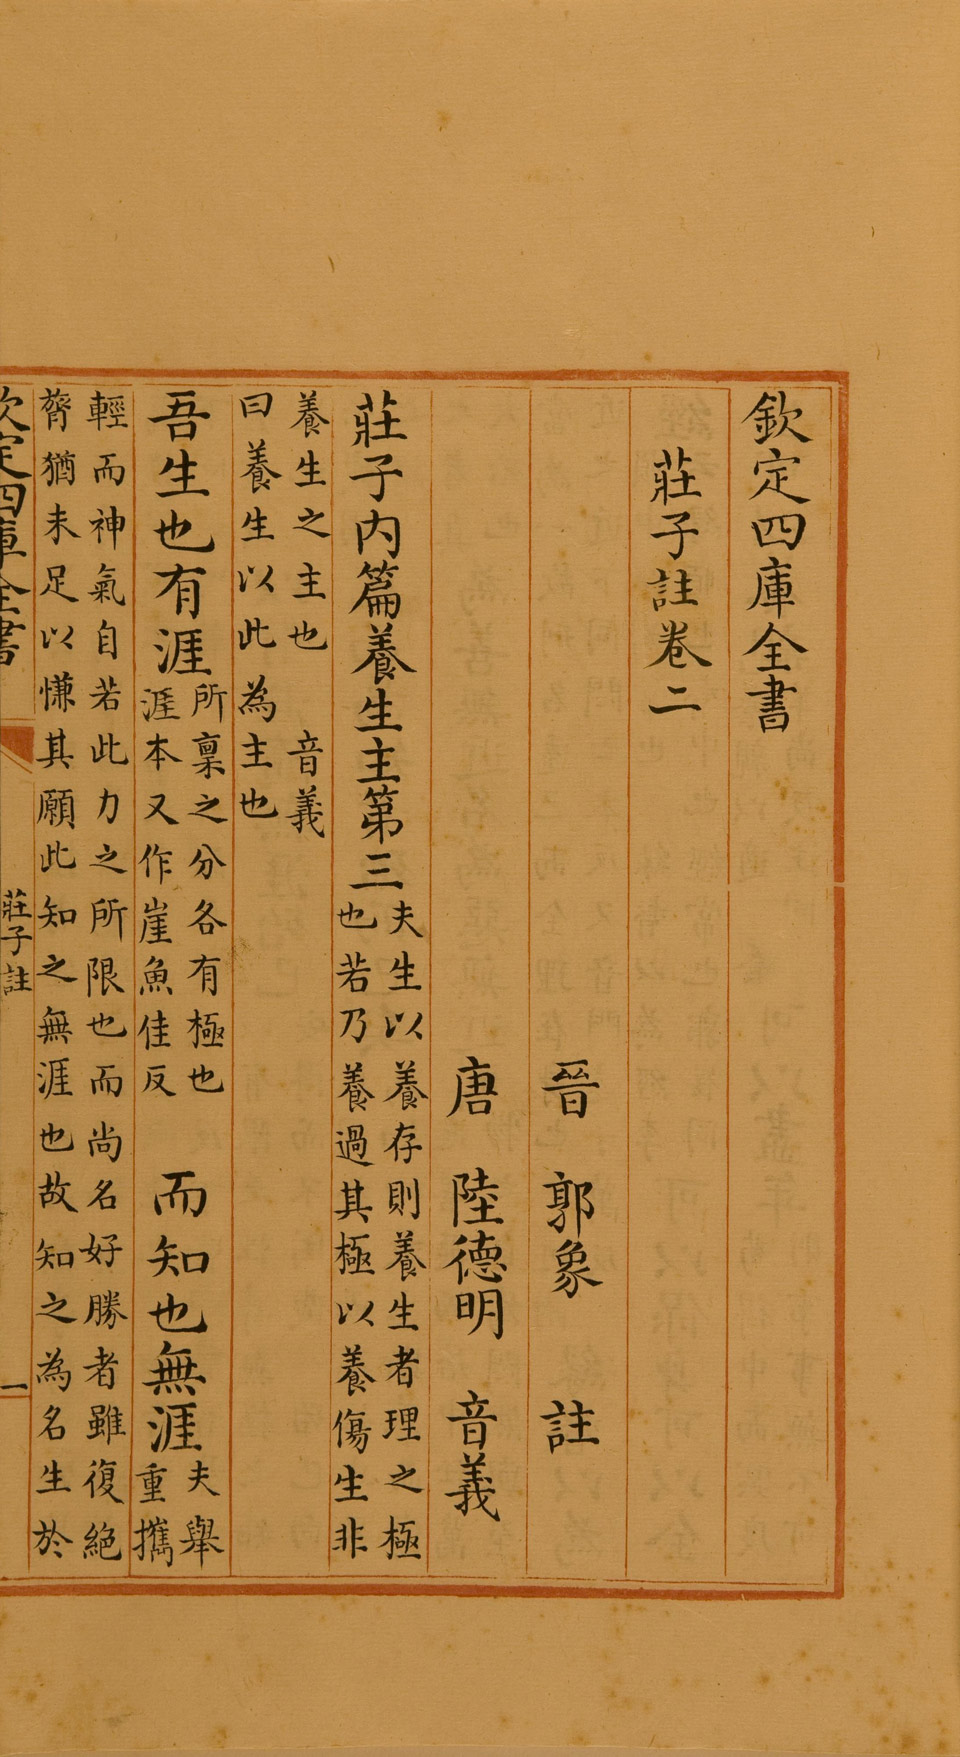 欽定四庫全書
莊子註卷二
晉 郭象 註
唐 陸德明 音義
莊子內篇養生主第三夫生以養存則養生者理之極
也若乃養過其極以養傷生非
養生之主也 音義
曰養生以此為主也
吾生也有涯所稟之分各有極也
涯本又作崖魚佳反
而知也無涯夫舉
重攜
輕而神氣自若此力之所限也而尚名好勝者雖復絕
膂猶未足以慊其願此知之無涯也故知之為名生於
欽定四庫全書
莊子註
一